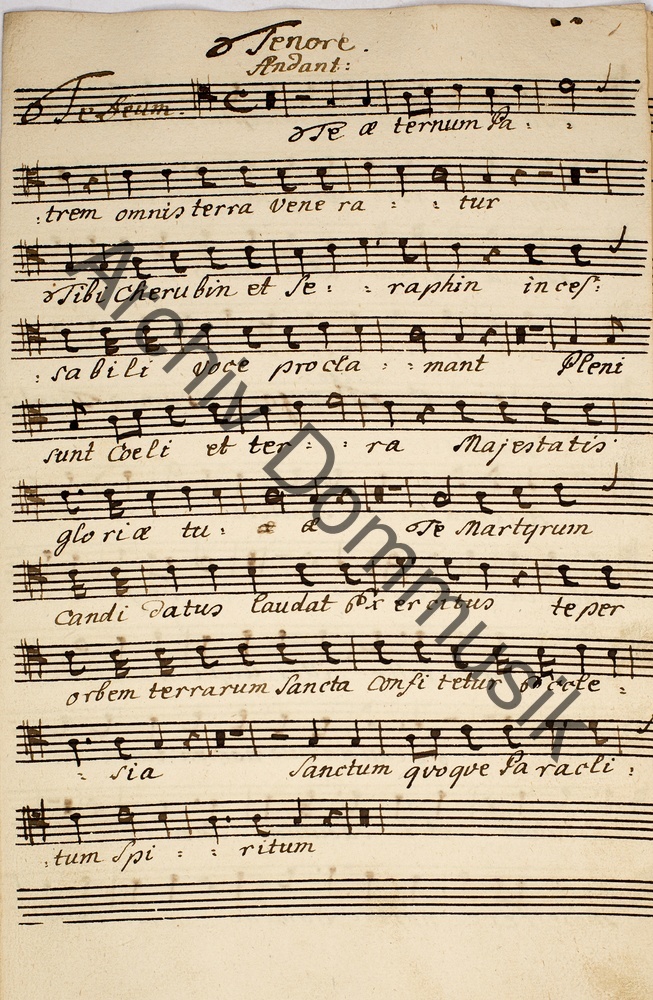 Tenore.
Andant:
Te Deum.
Te æ ternum Pa : :
: trem omnis terra vene ra : : tur
Tibi Cherubin et Se : : raphin inces :
: sa bi li voce procla : : mant Pleni
sunt Coeli et ter : : ra Majestatis
glo ri æ tu : æ æ Te Martyrum
candi datus laudat Ex er citus te per
orbem terrarum Sancta Confi tetur Eccle :
: sia Sanctum quoque Pa racli :
: tum Spi : : ritum
Archiv Dommusik